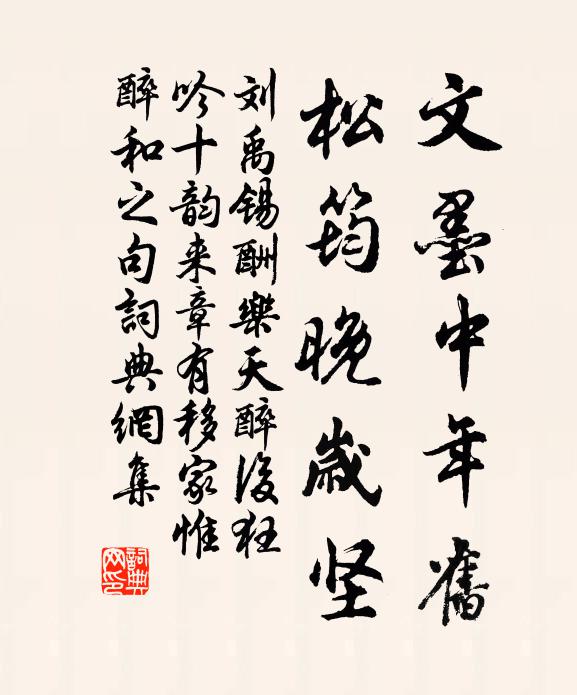 文墨中年舊
松筠晚歲坚
刘禹锡酬樂天醉後狂
吟十韵来章有移家惟
醉和之句詞典網集
詞典
网印